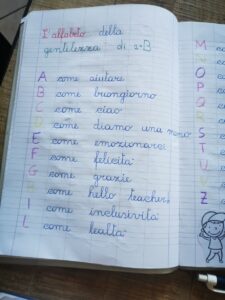 L'alfabeto della
gentilezza di 2^B
A come aiutare
B come buongiorno
C come ciao
D come diamo una mano
E come emozionarci
F come felicità
G come grazie
H come hello teacher
I come inclusività
L come lealtà
M
N
O
P
Q
R
S
T
U
V
Z